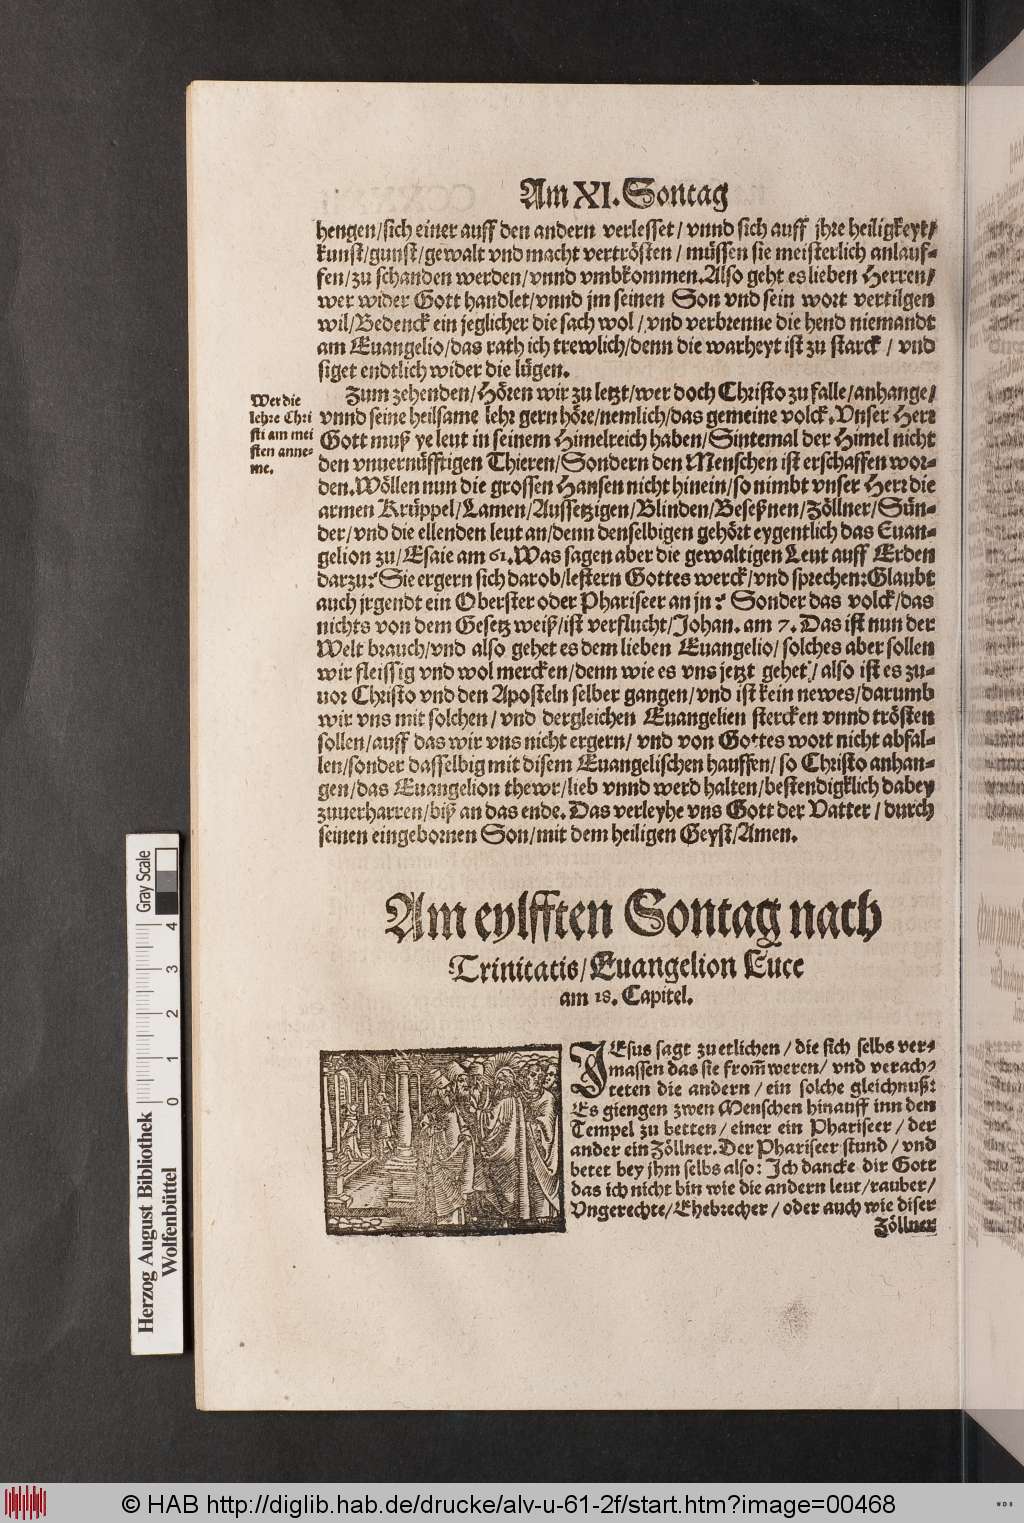 Am XI. Sontag
hengen/sich einer auff den andern verlesset/ vnnd sich auff jhre heiligkeyt/
kunst/gunst/gewalt vnd macht vertrösten/ müssen sie meisterlich anlauf-
fen/zu schanden werden/vnnd vmbkommen. Also geht es lieben Herren/
wer wider Gott handlet/vnnd jm seinen Son vnd sein wort vertilgen
wil/Bedenck ein jeglicher die sach wol/ vnd verbrenne die hend niemandt
am Euangelio/das rath ich trewlich/denn die warheyt ist zu starck/ vnd
siget endtlich wider die lügen.
Zum zehenden/Hören wir zu letzt/wer doch Christo zu falle/anhange/
vnnd seine heilsame lehr gern höre/nemlich/das gemeine volck. Vnser Herr
Gott muß ye leut in seinem Himelreich haben/Sintemal der Himel nicht
den vnuernüfftigen Thieren/Sondern den Menschen ist erschaffen wor-
den. Wöllen nun die grossen Hansen nicht hinein/so nimbt vnser Herr die
armen Krüppel/Lamen/Aussetzigen/Blinden/Beseßnen/Zöllner/Sün-
der/vnd die ellenden leut an/denn denselbigen gehört eygentlich das Euan-
gelion zu/Esaie am 61. Was sagen aber die gewaltigen Leut auff Erden
darzu? Sie ergern sich darob/lestern Gottes werck/vnd sprechen: Glaubt
auch jrgendt ein Oberster oder Phariseer an jn? Sonder das volck/das
nichts von dem Gesetz weiß/ist verflucht/Johan. am 7. Das ist nun der
Welt brauch/vnd also gehet es dem lieben Euangelio/ solches aber sollen
wir fleissig vnd wol mercken/denn wie es vns jetzt gehet/ also ist es zu-
uor Christo vnd den Aposteln selber gangen/vnd ist kein newes/darumb
wir vns mit solchen/ vnd dergleichen Euangelien stercken vnnd trösten
sollen/auff das wir vns nicht ergern/ vnd von Gottes wort nicht abfal-
len/sonder dasselbig mit disem Euangelischen hauffen/ so Christo anhan-
gen/das Euangelion thewr/lieb vnnd werd halten/bestendigklich dabey
zuuerharren/biß an das ende. Das verleyhe vns Gott der Vatter/ durch
seinen eingebornen Son/mit dem heiligen Geyst/Amen.
Wer die
lehre Chri
sti am mei
sten anne-
me.
Am eylfften Sontag nach
Trinitatis/Euangelion Luce
am 18. Capitel.
JEsus sagt zu etlichen/ die sich selbs ver-
massen das sie from̃ weren/ vnd verach-
teten die andern/ ein solche gleichnuß:
Es giengen zwen Menschen hinauff inn den
Tempel zu betten/ einer ein Phariseer/ der
ander ein Zöllner. Der Phariseer stund/ vnd
betet bey jhm selbs also: Ich dancke dir Gott
das ich nicht bin wie die andern leut/rauber/
Vngerechte/Ehebrecher/ oder auch wie diser
Zöllner
Gray Scale
0 1 2 3 4
Herzog August Bibliothek
Wolfenbüttel
© HAB http://diglib.hab.de/drucke/alv-u-61-2f/start.htm?image=00468